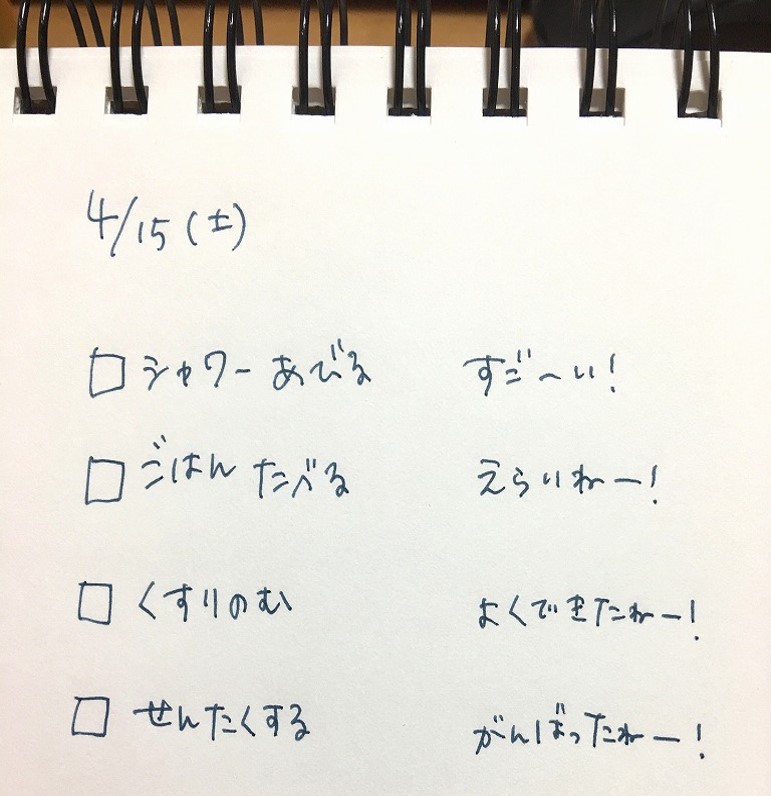 4/15(土)
□ シャワーあびる すご〜い!
□ ごはん たべる えらいねー!
□ くすりのむ よくできたねー!
□ せんたくする がんばったねー!